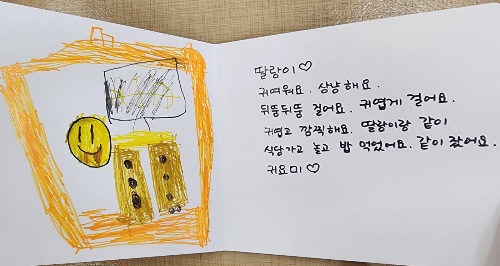 딸랑이♡
귀여워요. 상냥해요.
뒤뚱뒤뚱 걸어요. 귀엽게 걸어요.
귀엽고 깜찍해요. 딸랑이랑 같이
식당가고 놀고 밥 먹었어요. 같이 잤어요.
귀요미♡